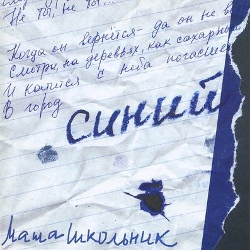 Не то, не то...
Когда он вернётся - да он не в
Смотри, на деревьях, как сахарный
И катится с неба погасше
В город
синий
Маша Школьник